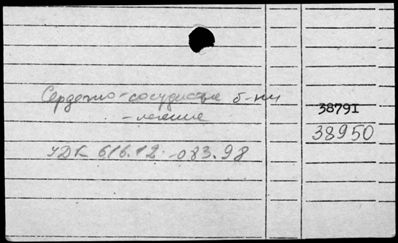 Сердечно-сосудистые б-ни
- лечение
38791
38950
УДК 616.12-083.98